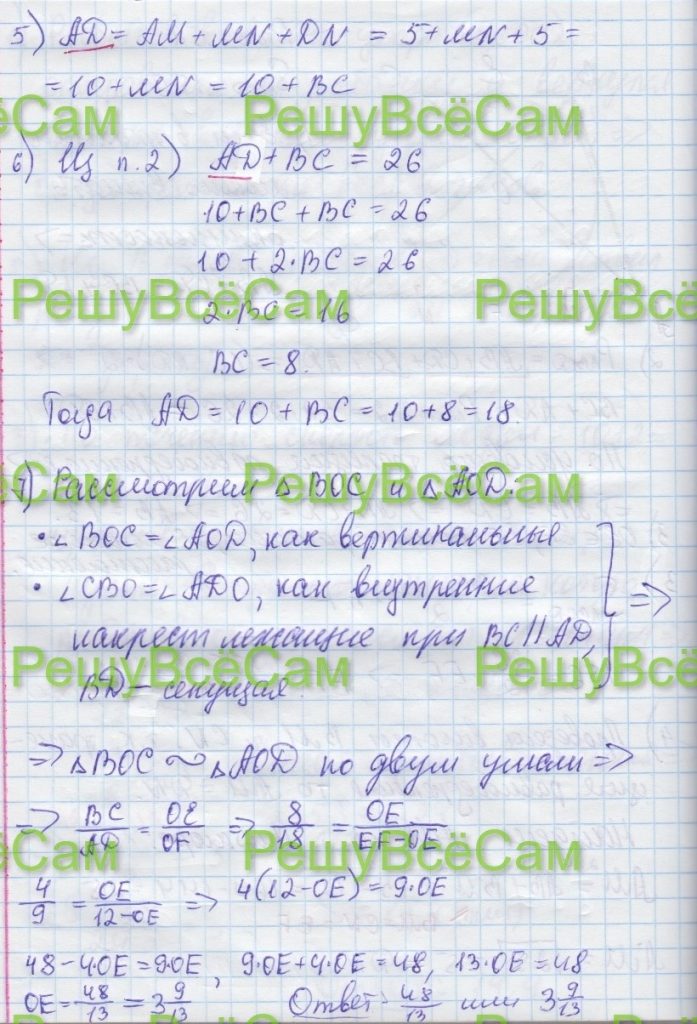 5) AD = AM + MN + DN = 5 + MN + 5 =
= 10 + MN = 10 + BC
РешуВсёСам РешуВсёСам
6) Из п. 2) AD + BC = 26
10 + BC + BC = 26
10 + 2·BC = 26
РешуВсёСам РешуВсёСам
2·BC = 16
BC = 8.
Тогда AD = 10 + BC = 10 + 8 = 18.
РешуВсёСам РешуВсёСам
7) Рассмотрим △BOC и △AOD:
• ∠BOC = ∠AOD, как вертикальные
• ∠CBO = ∠ADO, как внутренние ⇒
накрест лежащие при BC || AD,
РешуВсёСам РешуВсёСам
BD – секущая.
⇒ △BOC ∼ △AOD по двум углам ⇒
⇒ BC/AD = OE/OF ⇒ 8/18 = OE/(EF-OE)
РешуВсёСам РешуВсёСам
4/9 = OE/(12-OE) ⇒ 4(12-OE) = 9·OE
48 - 4·OE = 9·OE, 9·OE + 4·OE = 48, 13·OE = 48
OE = 48/13 = 3 9/13 Ответ: 48/13 или 3 9/13